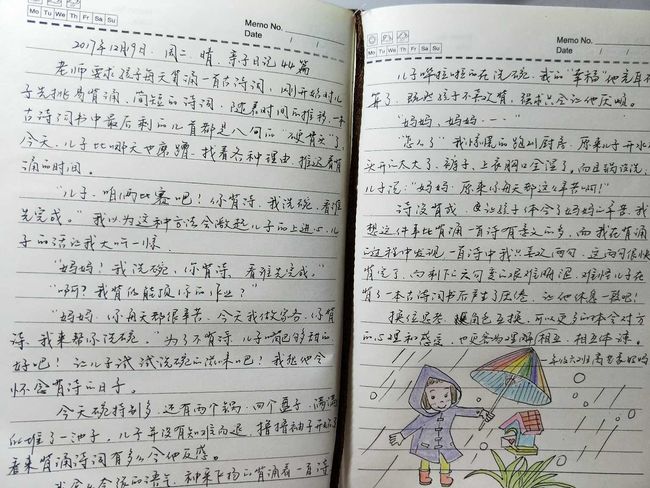 Memo No.
Mo Tu We Th Fr Sa Su
Date / /
2017年12月19日. 周二 晴. 亲子日记44篇
老师要求孩子每天背诵一首古诗词,刚开始时儿
子先挑易背诵,简短的诗词,随着时间的推移,一本
古诗词书中最后剩的几首都是八句的"硬骨头"了.
今天.儿子比哪天也磨蹭.找着各种理由.推迟着背
诵的时间.
"儿子.咱俩比赛吧!你背诗.我洗碗.看谁
先完成."我以为这种方法会激起儿子的上进心.儿
子的话让我大吃一惊.
"妈妈!我洗碗.你背诗.看谁先完成."
"啊?我背你能顶你的作业?"
"妈妈.你每天都很辛苦.今天我做家务.你背
诗.我来帮你洗碗."为了不背诗.儿子嘴巴够甜的
好吧!让儿子试试洗碗的滋味吧!我想他会
怀念背诗的日子.
今天碗特别多.还有两个锅.四个盘子.满满
的堆了一池子.儿子并没有知难而退.撸撸袖子开始
看来背诵诗词有多么令他反感.
的背诵着一首诗
Memo No.
Date / /
儿子哗啦啦的在洗碗.我的"幸福"他充耳
算了.既然孩子不喜欢背,强求只会让他厌烦.
"妈妈,妈妈..."
"怎么了"我惊慌的跑到厨房.原来儿子开水
头开的太大了.裤子、上衣胸口全湿了.而且锅没洗.
儿子说:"妈妈.原来你每天都这么辛苦啊!"
诗没背成.更让孩子体会了妈妈的辛苦.我
想这件事比背诵一首诗有意义的多.而我在背诵
的过程中发现.一首诗中我只喜欢两句.这两句很快
背完了.而剩下的六句变的艰难晦涩.难怪儿子在
背了一本古诗词书后产生了厌倦.让他休息一段吧!
换位思考.角色互换.可以更多的体会对方
的心理和感受,也更容易理解相互.相互体谅.